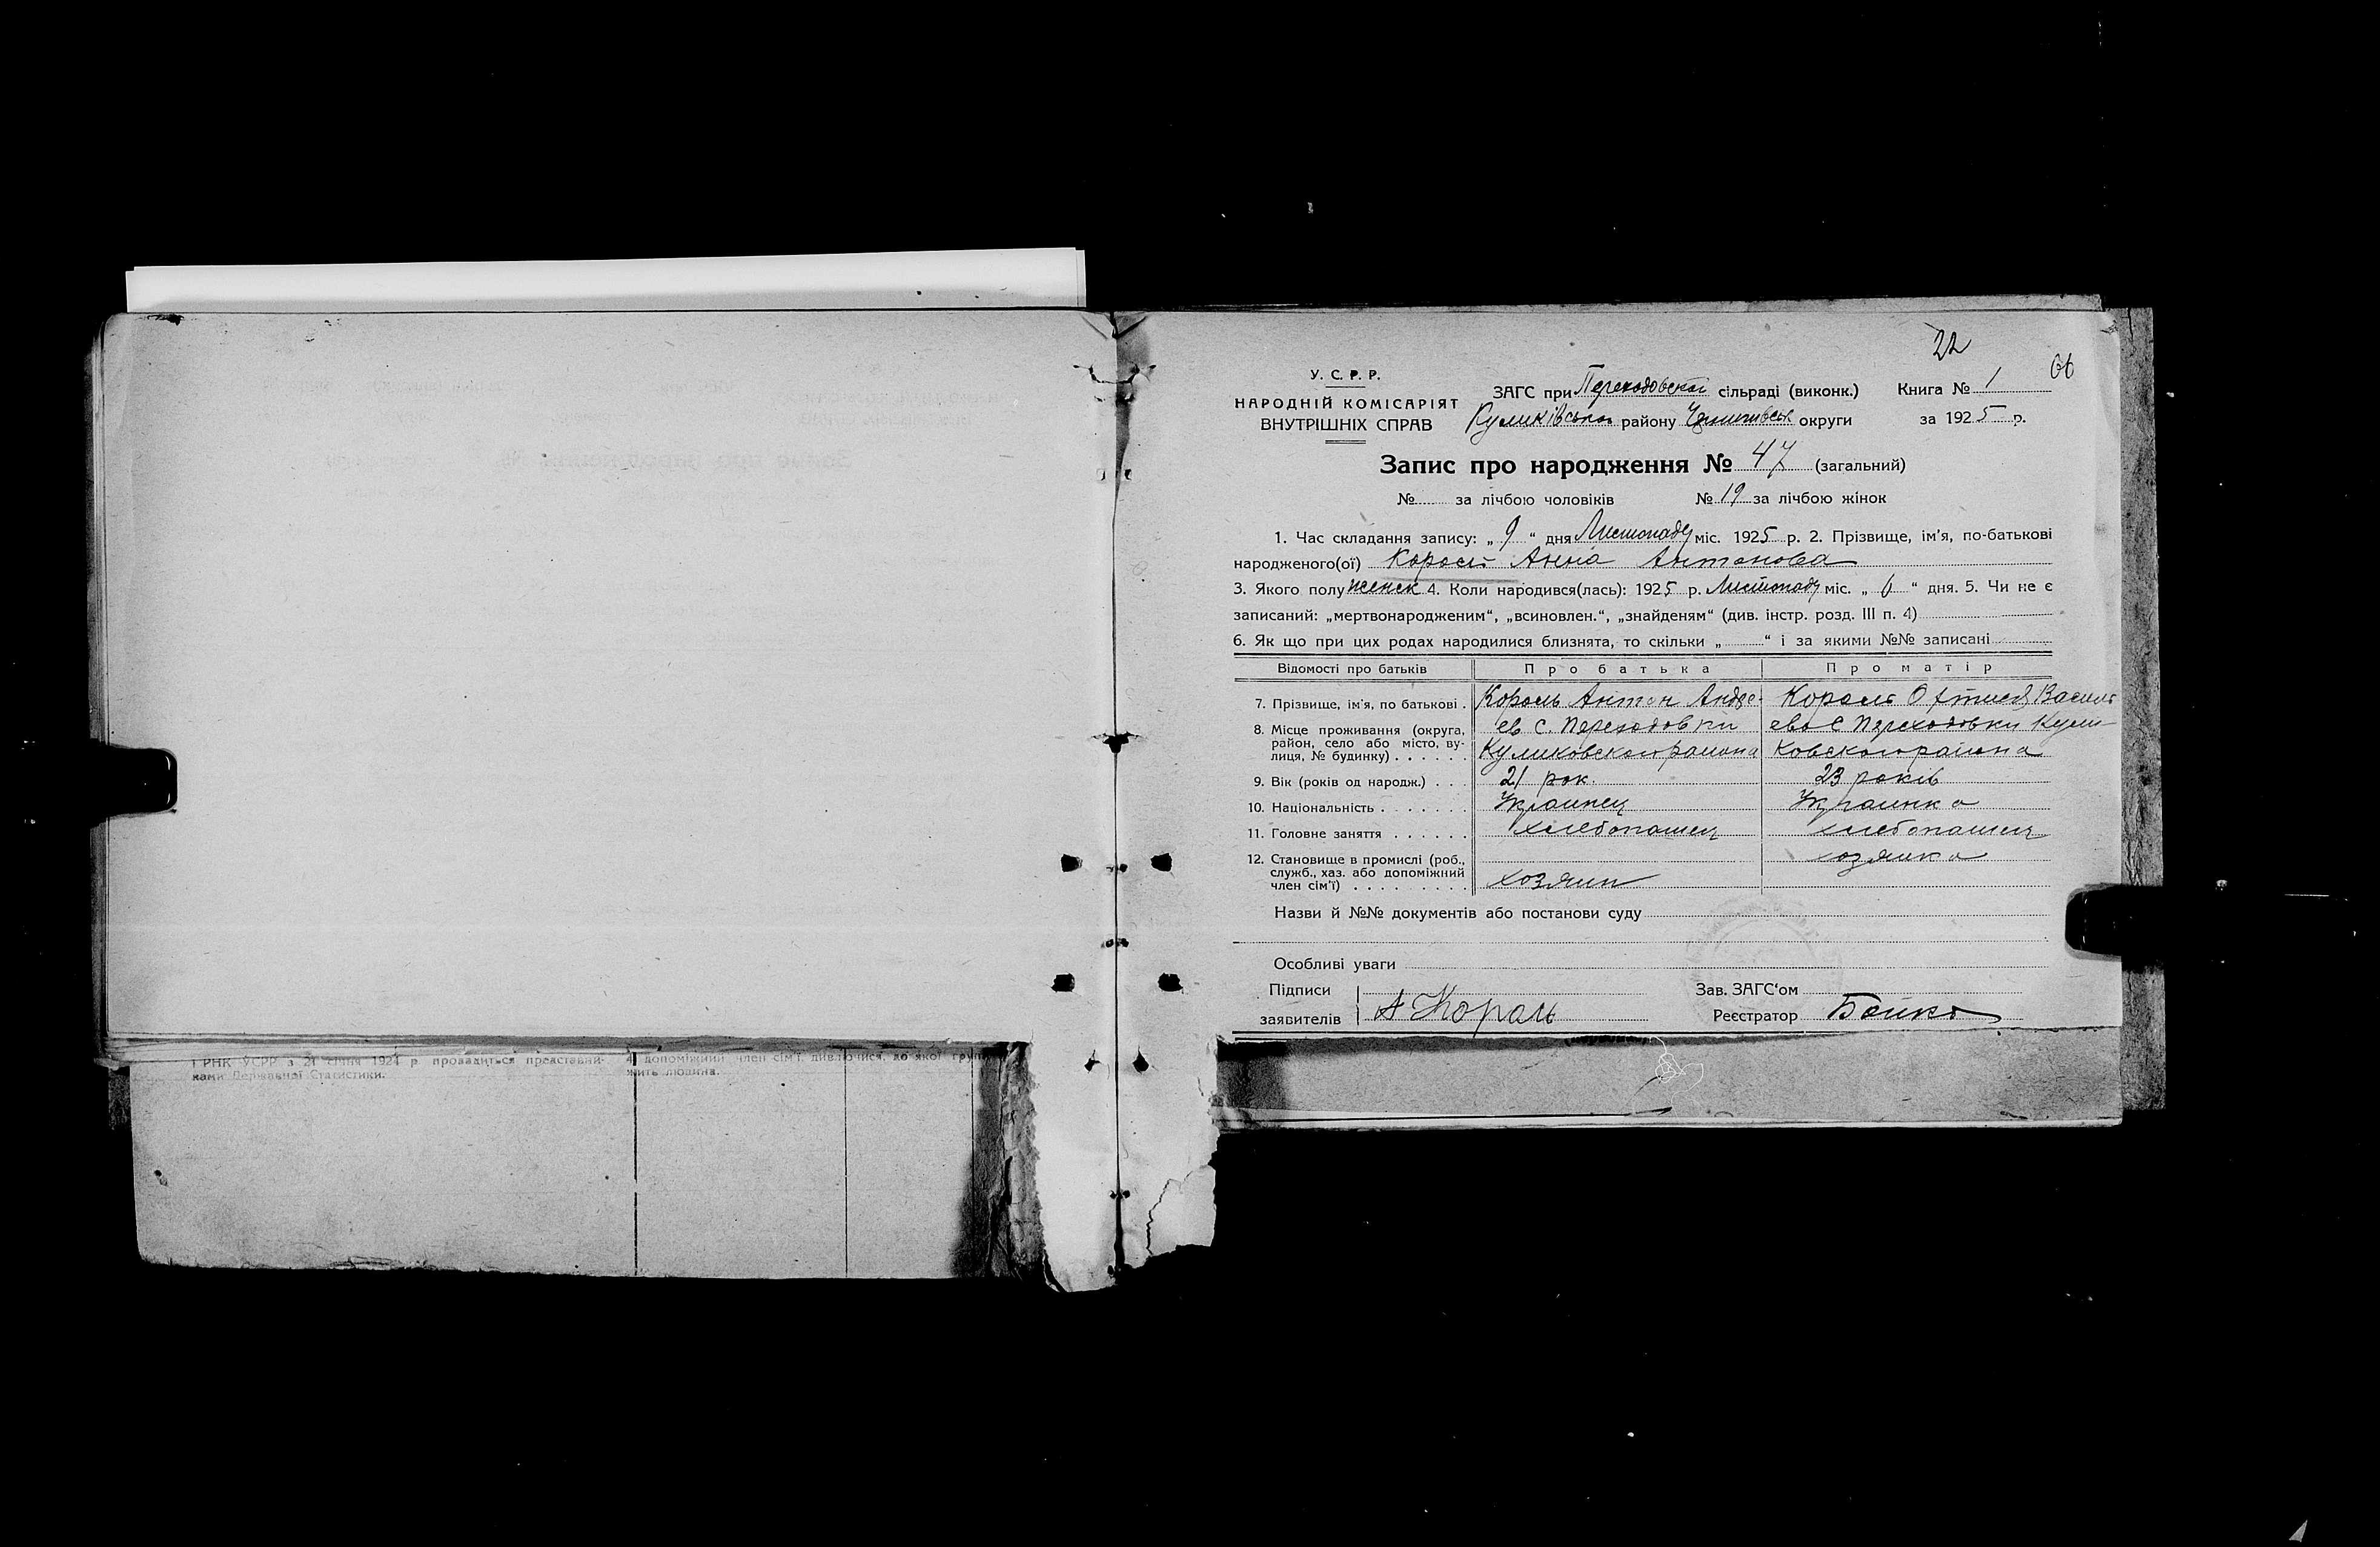 22
66
У. С. Р. Р.
НАРОДНІЙ КОМІСАРІЯТ
ВНУТРІШНІХ СПРАВ
ЗАГС при Переходовской сільраді (виконк.) Книга № 1
Куликівського району Чернигівськ округи за 1925 р.
Запис про народження № 47 (загальний)
№ за лічбою чоловіків № 19 за лічбою жінок
1. Час складання запису: „ 9 “ дня Листопаду міс. 1925 р. 2. Прізвище, ім'я, по-батькові
народженого(ої) Король Анна Антонова
3. Якого полу женск 4. Коли народився(лась): 1925 р. Листопаду міс. „ 6 “ дня. 5. Чи не є
записаний: „мертвонародженим“, „всиновлен.“, „знайденям“ (див. інстр. розд. III п. 4)
6. Як що при цих родах народилися близнята, то скільки „ “ і за якими №№ записані
Відомості про батьків Про батька Про матір
7. Прізвище, ім'я, по батькові . Король Антон Андре- Король Василь
8. Місце проживання (округа, ев с. Переходовки ева с Переходовки Кули-
район, село або місто, ву-
лиця, № будинку) . . . . . . Куликовского района ковского района
9. Вік (років од народж.) . . . 21 рок. 23 років
10. Національність . . . . . . . Украинец Украинка
11. Головне заняття . . . . . . хлебопашец хлебопашец
12. Становище в промислі (роб., хозяика
служб., хаз. або допоміжний
член сім'ї) . . . . . . . . . хозяин
Назви й №№ документів або постанови суду
Особливі уваги
Підписи Зав. ЗАГС'ом
заявителів А Король Реєстратор Бойко
і РНК УСРР з 21 січня 1924 р провадиться представни-
ками Державної Статистики.
4) допоміжний член сім'ї, дивлючися, до якої груп
жить людина.